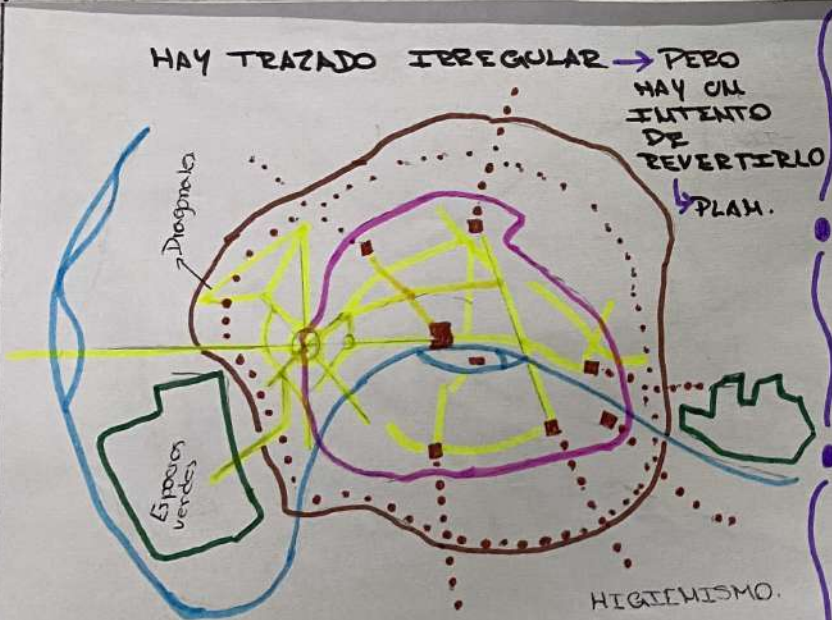 HAY TRAZADO IRREGULAR → PERO
HAY UN
INTENTO
DE
REVERTIRLO
↳ PLAM.
Diagonales
Espacios
verdes
HIGIENISMO.